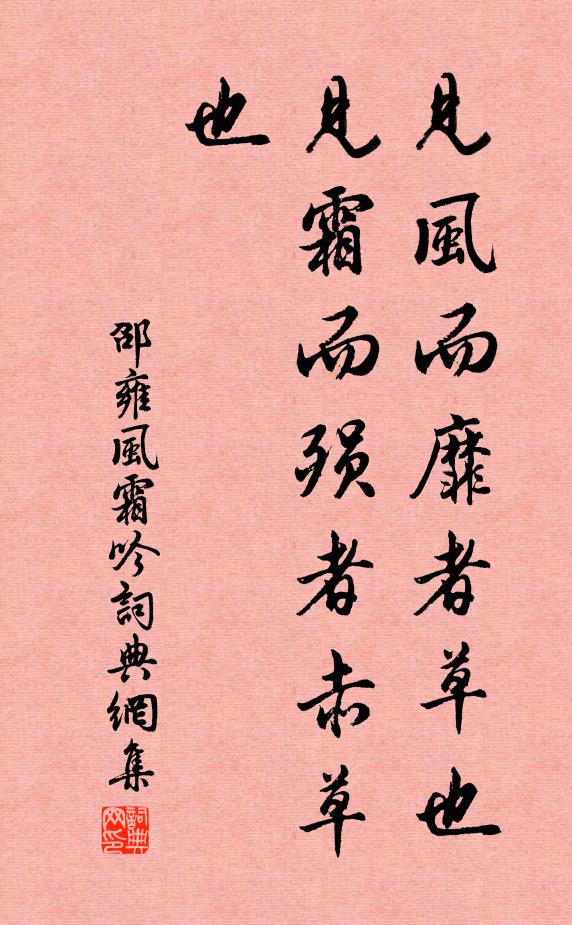 見風而靡者草也
見霜而殞者亦草
也
邵雍風霜吟詞典網集
詞典
网印